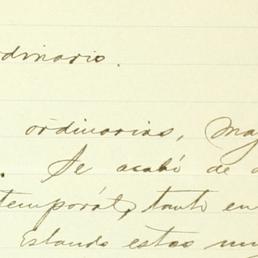 rdinario.
ordinarias, May
. Se acabó de
temporát, tanto en
Estando estas muy